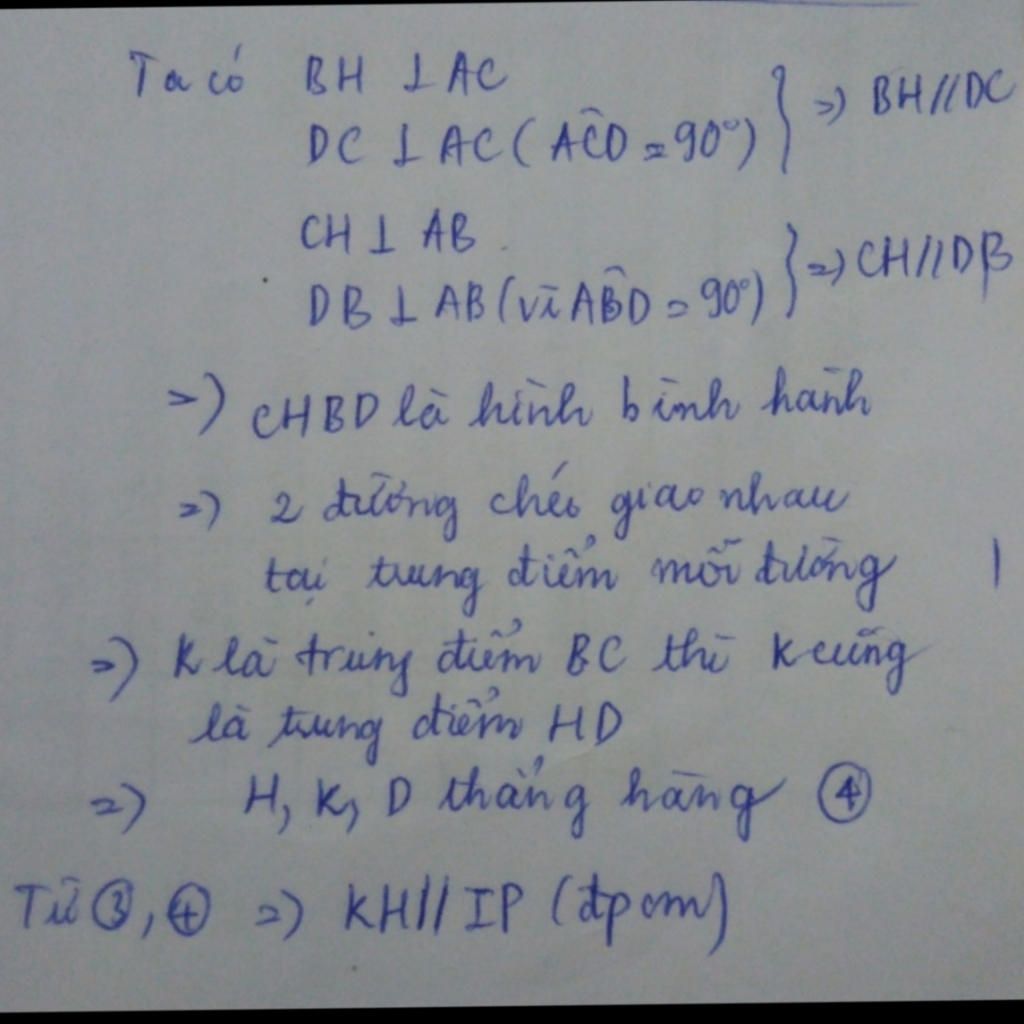 Ta có BH ⊥ AC
DC ⊥ AC (AĈD = 90°) } => BH // DC
CH ⊥ AB
DB ⊥ AB (vì AB̂D = 90°) } => CH // DB
=> CHBD là hình bình hành
=> 2 đường chéo giao nhau
tại trung điểm mỗi đường
=> K là trung điểm BC thì K cũng
là trung điểm HD
=> H, K, D thẳng hàng ④
Từ ③, ④ => KH // IP (đpcm)